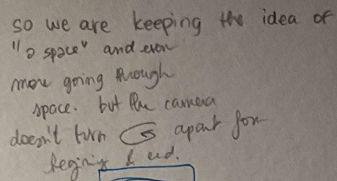 so we are keeping the idea of
"a space" and even
more going through
space. but the camera
doesn't turn apart from
begining & end.